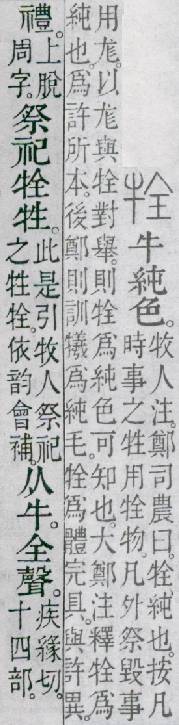 牷 牛純色。牧人注。鄭司農曰。牷、純也。按凡
時事之牲用牷物。凡外祭毀事
用尨。以尨與牷對舉。則牷爲純色可知也。大鄭注釋牷爲
純也。爲許所本。後鄭則訓犧爲純毛。牷爲體完具。與許異。
禮。上脫
周字。
祭祀牷牲。
此是引牧人祭祀
之牲牷。依韵會補。
从牛。全聲。
疾緣切。
十四部。